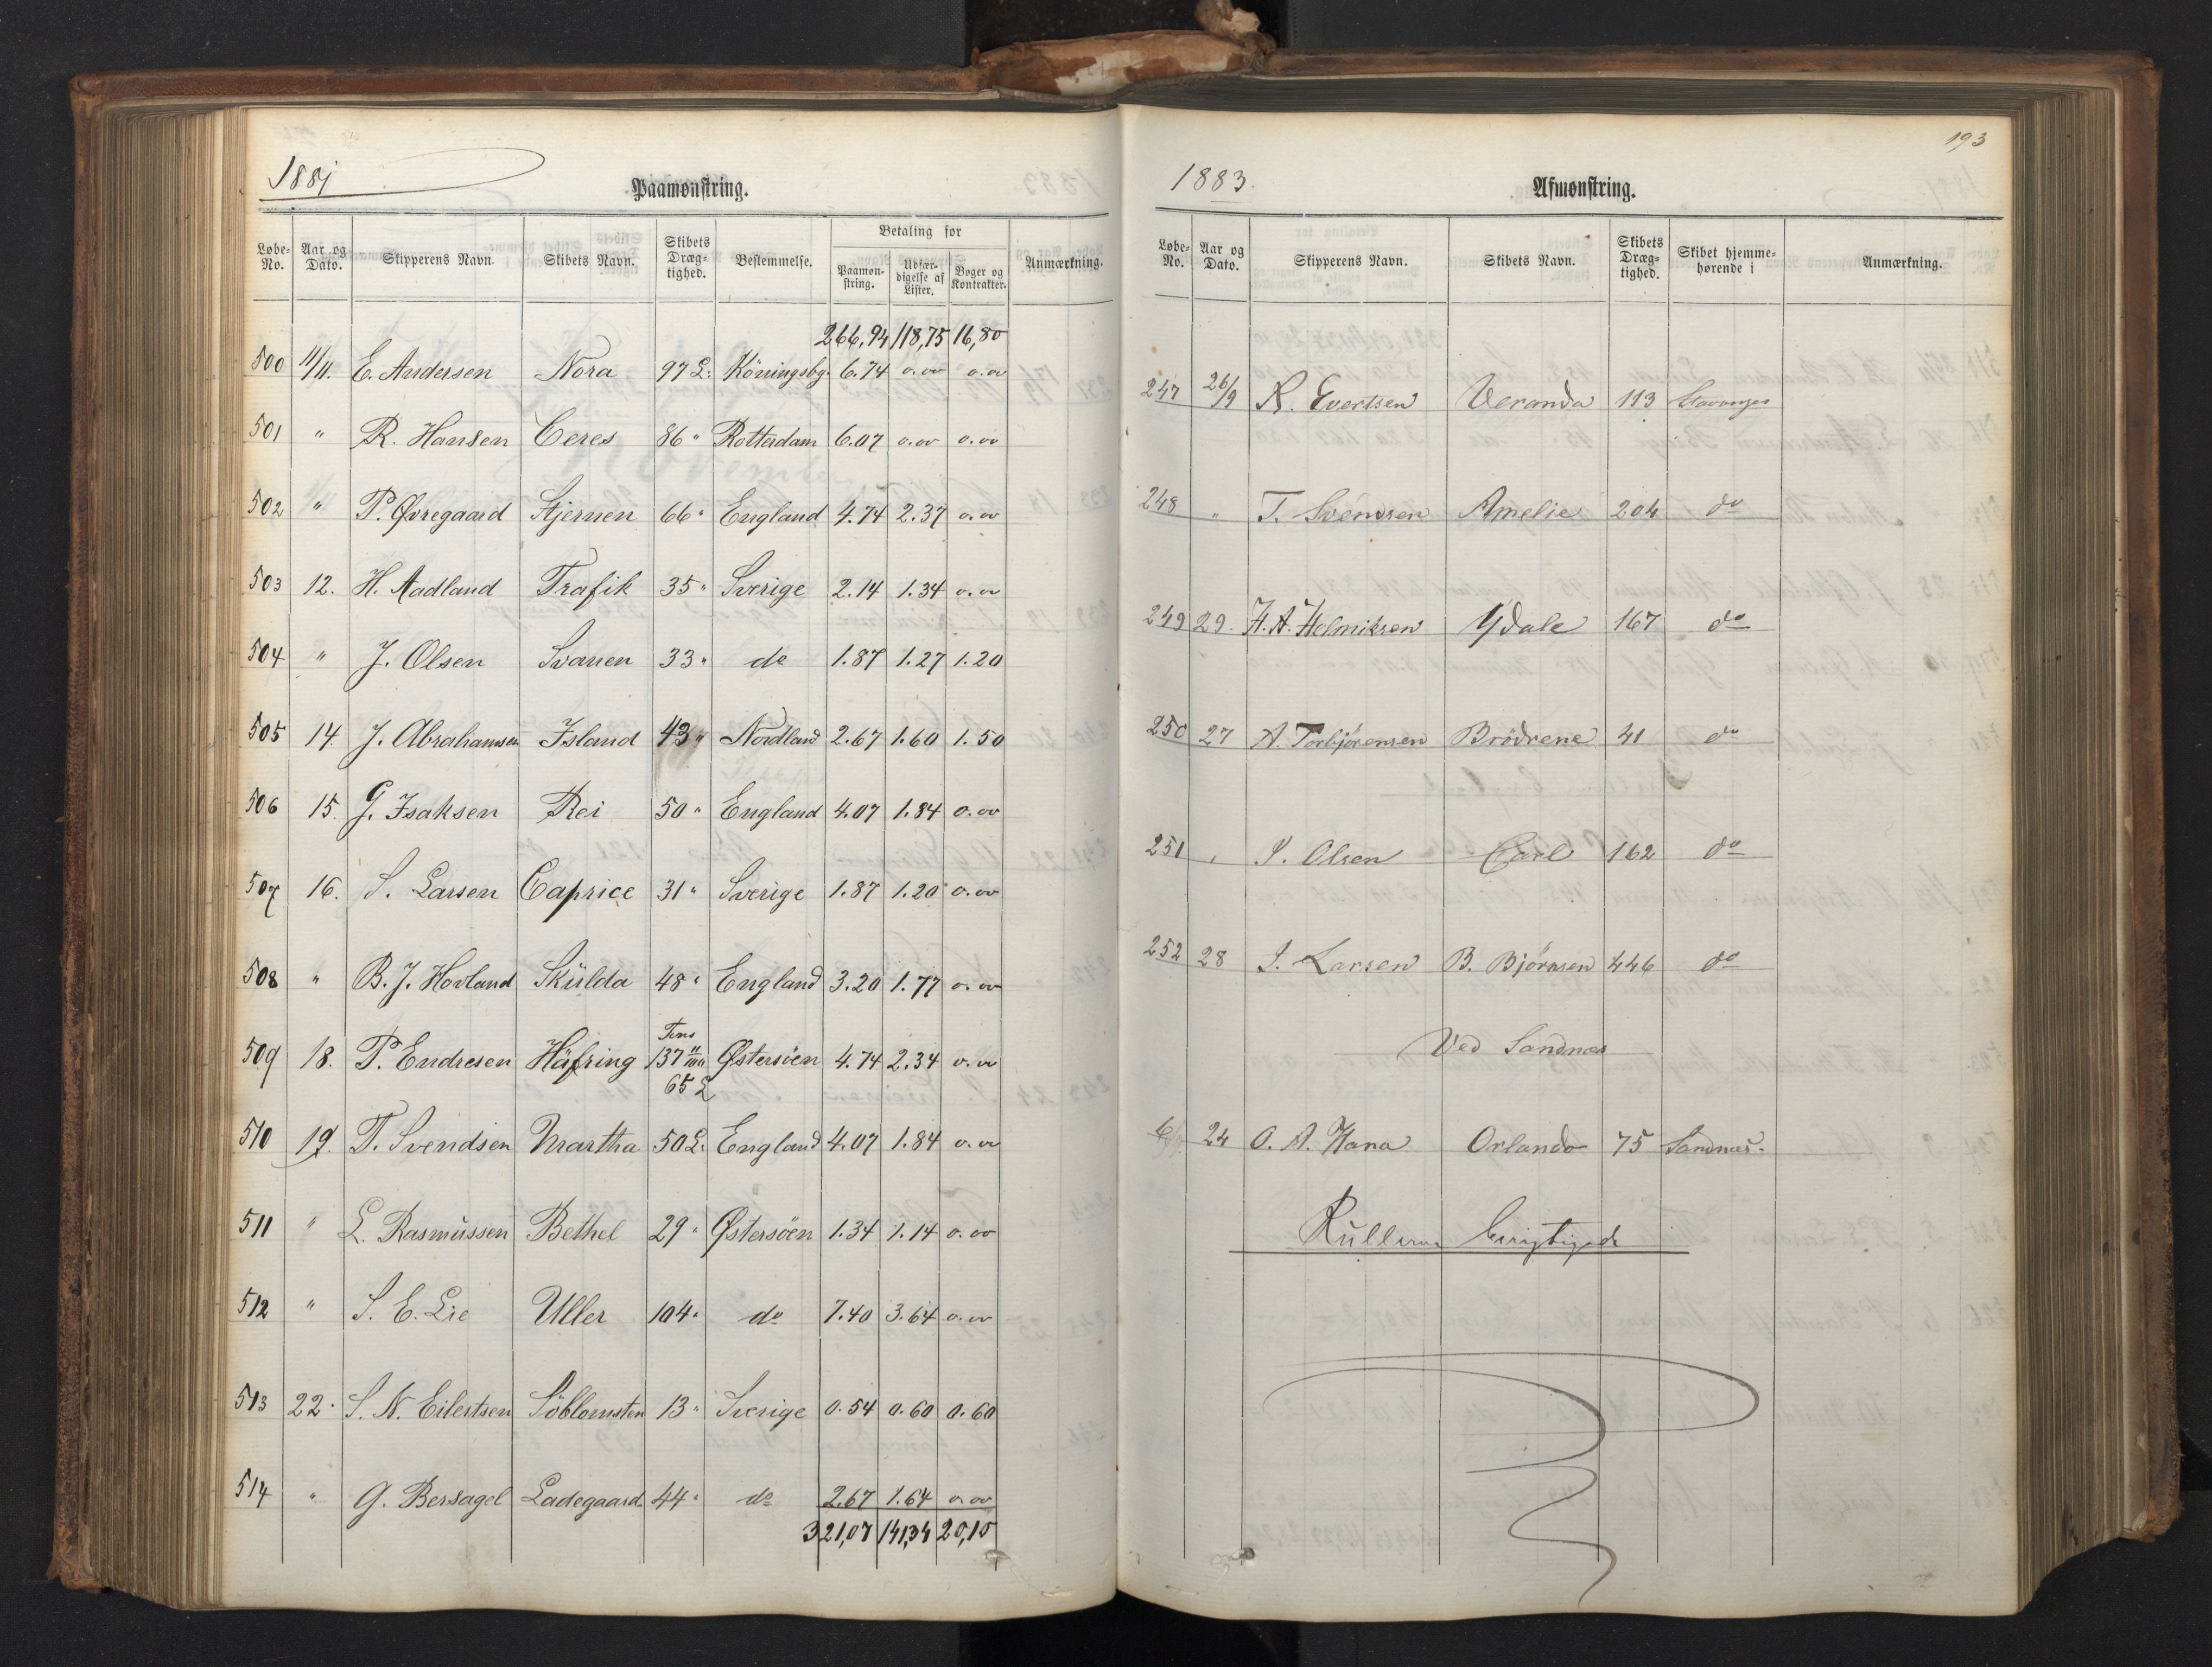 1881
Paamønstring.
Løbe-No. Aar og Dato. Skipperens Navn. Skibets Navn. Skibets Dræg-tighed. Bestemmelse. Betaling for Paamøn-string. Udfær-digelse af Lister. Bøger og Kontrakter. Anmærkning.
266,94 118,75 16,80
500 11/11. E. Andersen Nora 97 L: Köningsbg. 6.74 0.00 0.00
501 " R. Hansen Ceres 86 " Rotterdam 6.07 0.00 0.00
502 " P. Øvregaard Stjernen 66 " England 4.74 2.37 0.00
503 12. H. Aadland Trafik 35 " Sverige 2.14 1.34 0.00
504 " J. Olsen Svanen 33 " do 1.87 1.27 1.20
505 14. J. Abrahamsen Island 43 " Nordland 2.67 1.60 1.50
506 15. G. Isaksen Rei 50 " England 4.07 1.84 0.00
507 16. S. Larsen Caprice 31 " Sverige 1.87 1.20 0.00
508 " B. J. Hovland Skulda 48 " England 3.20 1.77 0.00
509 18. P. Endresen Häfring Tons 137 65 L Østersöen 4.74 2.34 0.00
510 19. T. Svendsen Martha 50 L: England 4.07 1.84 0.00
511 " L. Rasmussen Bethel 29 " Østersöen 1.34 1.14 0.00
512 " S. E. Lie Uller 104 " do 7.40 3.64 0.00
513 22. S. N. Eilertsen Söblomsten 13 " Sverige 0.54 0.60 0.60
514 " G. Bersagel Ladegaard 44 " do 2.67 1.64 0.00
321,07 141,34 20,10
193
1883.
Afmønstring.
Løbe-No. Aar og Dato. Skipperens Navn. Skibets Navn. Skibets Dræg-tighed. Skibet hjemme-hørende i Anmærkning.
247 26/9 R. Evertsen Veranda 113 Stavanger
248 " T. Svendsen Amelie 204 do
249 29. H. A. Helmiksen Ydale 167 do
250 27 A. Torbjörensen Brödrene 41 do
251 " S. Olsen Carl 162 do
252 28 S. Larsen B. Björnsen 446 do
Ved Sandnæs
24 O. A. Hana Orlando 75 Sandnæs.
Rullerne berigtigede